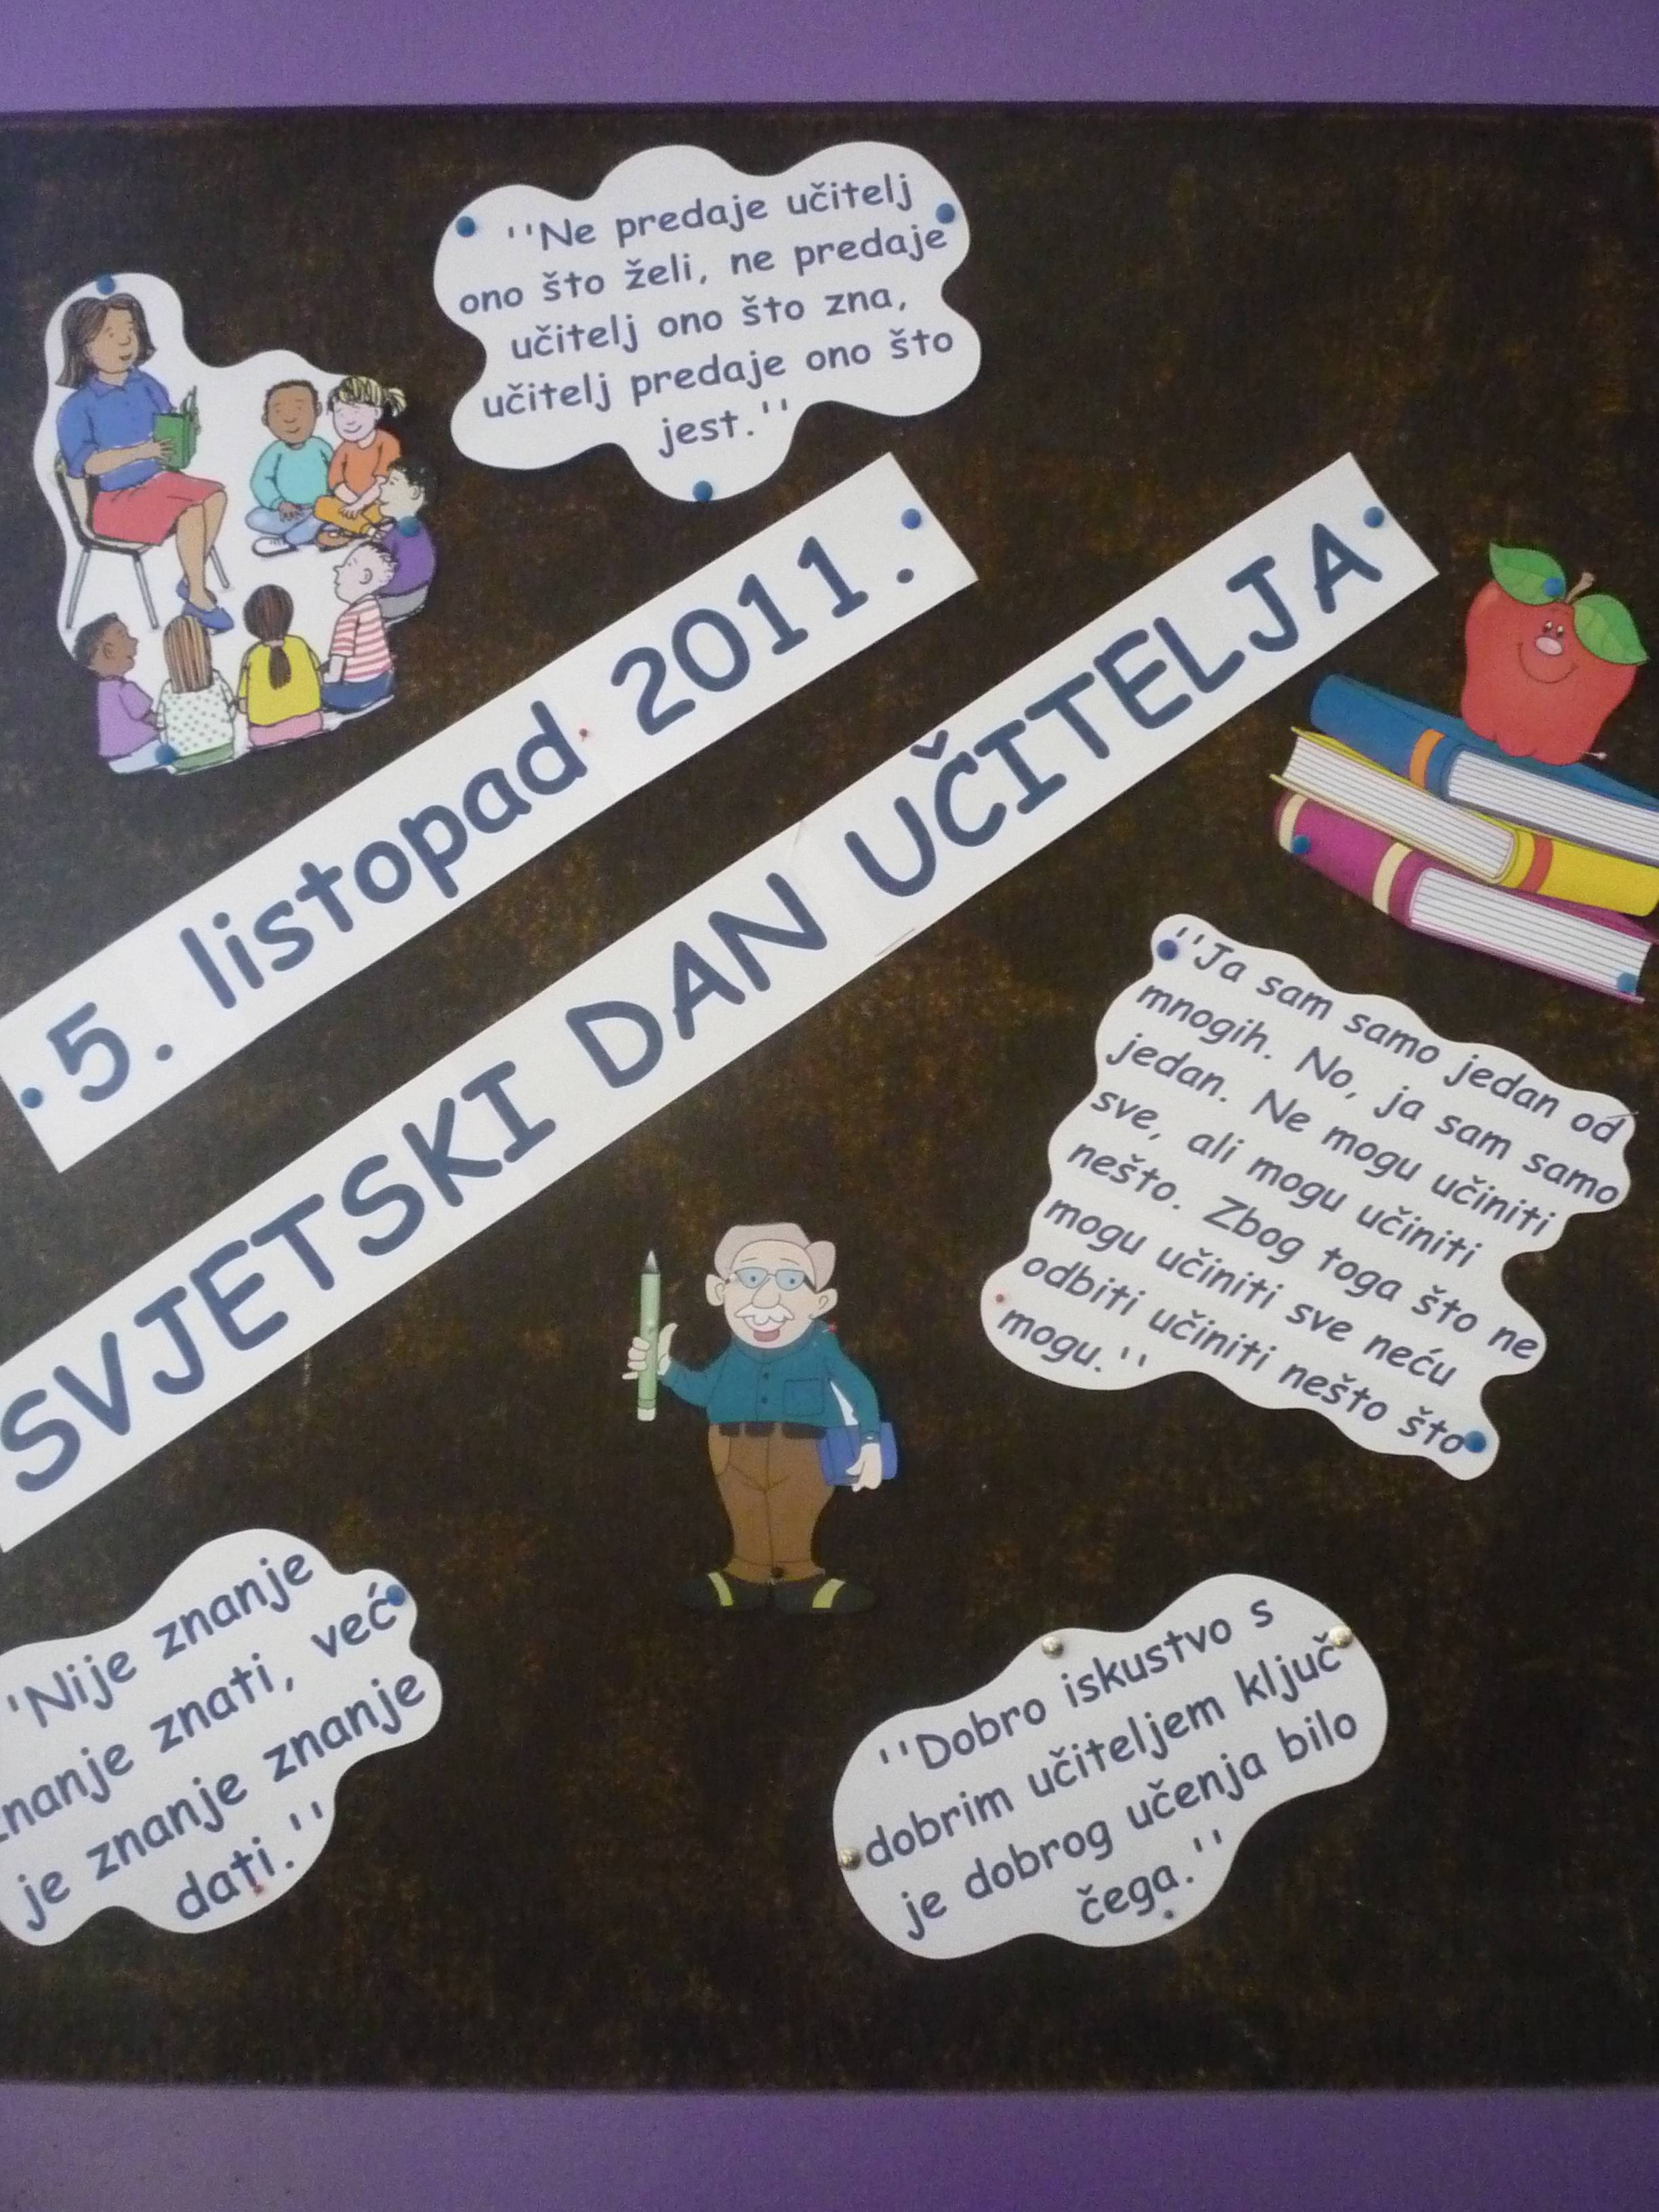 ''Ne predaje učitelj
ono što želi, ne predaje
učitelj ono što zna,
učitelj predaje ono što
jest.''
5. listopad 2011.
SVJETSKI DAN UČITELJA
''Ja sam samo jedan od
mnogih. No, ja sam samo
jedan. Ne mogu učiniti
sve, ali mogu učiniti
nešto. Zbog toga što ne
mogu učiniti sve neću
odbiti učiniti nešto što
mogu.''
'Nije znanje
znanje znati, već
je znanje znanje
dati.''
''Dobro iskustvo s
dobrim učiteljem ključ
je dobrog učenja bilo
čega.''